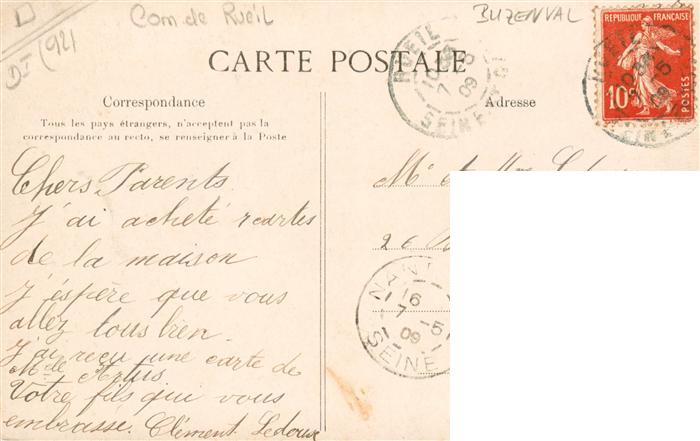 D
Dt (92)
Com de Rueil
BUZENVAL
CARTE POSTALE
RUEIL
7 5
09
SEINE
REPUBLIQUE FRANÇAISE
10
POSTES
Correspondance
Tous les pays étrangers, n'acceptent pas la
correspondance au recto, se renseigner à la Poste
Adresse
Chers Parents
J'ai acheté cartes
de la maison
J'espère que vous
allez tous bien.
J'ai reçu une carte de
Mde Artus
Votre fils qui vous
embrasse. Clément Ledoux
Mr et Mme
NAN
16
7 -5
09
SEINE